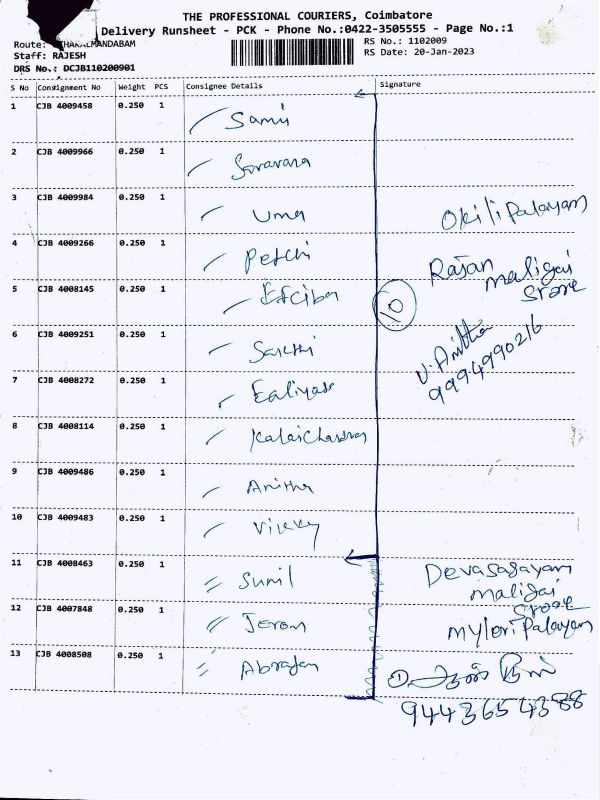 THE PROFESSIONAL COURIERS, Coimbatore
Delivery Runsheet - PCK - Phone No.:0422-3505555 - Page No.:1
Route: HAKALMANDABAM
RS No.: 1102009
Staff: RAJESH
RS Date: 20-Jan-2023
DRS No.: DCJB110200901
S No Consignment No Weight PCS Consignee Details Signature
1 CJB 4009458 0.250 1 Samu
2 CJB 4009966 0.250 1 Saravana
3 CJB 4009984 0.250 1 Uma
Okilipalayam
4 CJB 4009266 0.250 1 Petchi
Rajan maligai
Store
5 CJB 4008145 0.250 1
10
6 CJB 4009251 0.250 1 Sakthi
V. Anitha
9994990216
7 CJB 4008272 0.250 1
8 CJB 4008114 0.250 1 Kalaichandran
9 CJB 4009486 0.250 1 Anitha
10 CJB 4009483 0.250 1
11 CJB 4008463 0.250 1 Sunil
Devasagayam
maligai
Store
12 CJB 4007848 0.250 1 Jerom
myleripalayam
13 CJB 4008508 0.250 1
9443654388